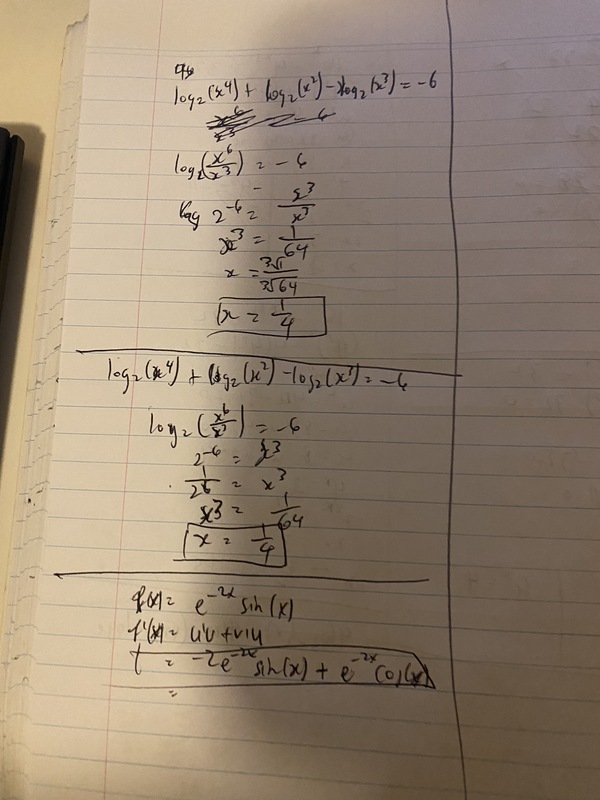 log₂(x⁴) + log₂(x²) - log₂(x³) = -6
= -6
log₂(x⁶/x³) = -6
2⁻⁶ = x³/x³
x³ = 1/64
x = ³√1/³√64
x = 1/4
log₂(x⁴) + log₂(x²) - log₂(x³) = -6
log₂(x⁶/x³) = -6
2⁻⁶ = x³
1/2⁶ = x³
x³ = 1/64
x = 1/4
f(x) = e⁻²ˣ sin(x)
f'(x) = u'v + v'u
= -2e⁻²ˣ sin(x) + e⁻²ˣ cos(x)
=